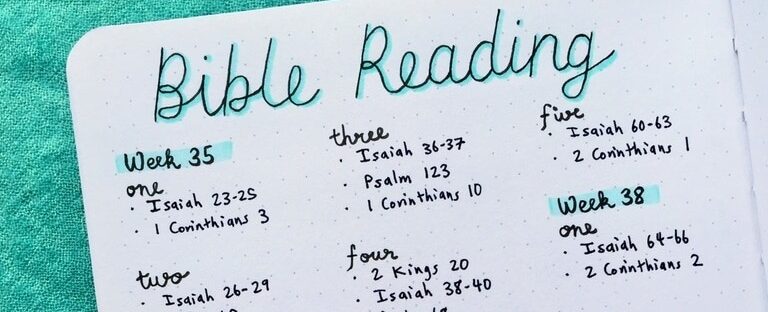 Bible Reading
Week 35
one
· Isaiah 23-25
· 1 Corinthians 3
two
· Isaiah 26-29
three
· Isaiah 36-37
· Psalm 123
· 1 Corinthians 10
four
· 2 Kings 20
· Isaiah 38-40
five
· Isaiah 60-63
· 2 Corinthians 1
Week 38
one
· Isaiah 64-66
· 2 Corinthians 2